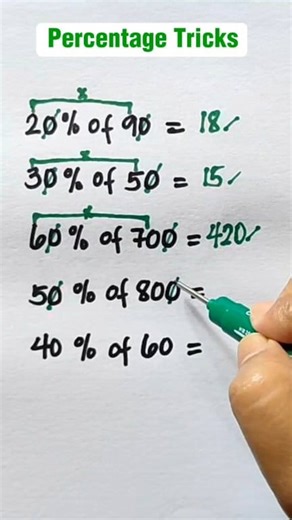 Percentage Tricks
x
20% of 90 = 18✓
x
30% of 50 = 15✓
x
60% of 700 = 420✓
50 % of 800 =
40 % of 60 =